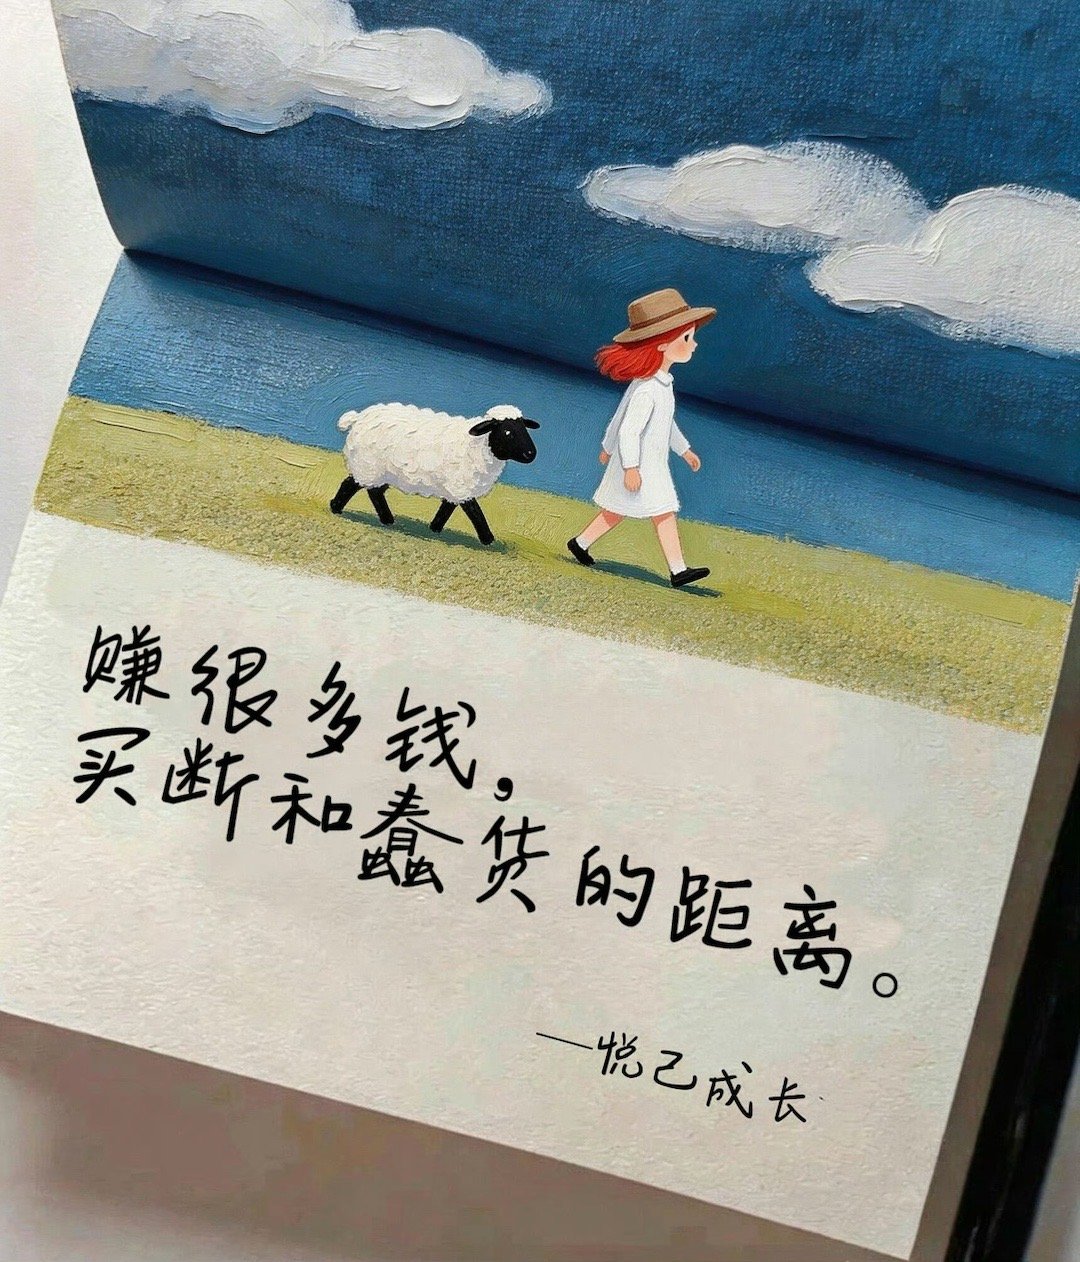 赚很多钱，
买断和蠢货的距离。
—悦己成长